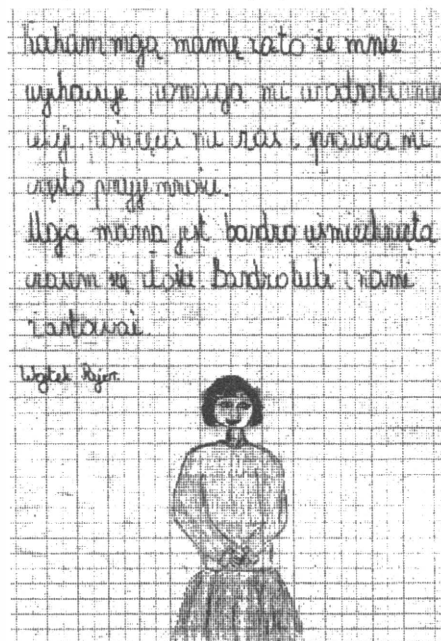 kaham moją mamę zato że mnie
wyhowuje, pomaga mi wodrobieniu
lekcji, poswięca mi czas i sprawia mi
często przyjemności.
Moja mama jest bardzo uśmiechnięta
czasem się złości. Bardzo lubi z nami
żartować.
Wojtek